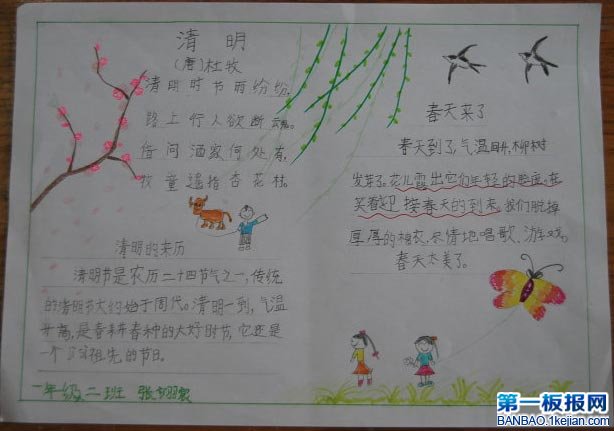 清明
(唐)杜牧
清明时节雨纷纷,
路上行人欲断魂。
借问酒家何处有,
牧童遥指杏花村。
清明的来历
清明节是农历二十四节气之一,传统
的清明节大约始于周代。清明一到,气温
升高,是春耕春种的大好时节,它还是
一个祖先的节日。
一年级二班 张
春天来了
春天到了,气温回升,柳树
发芽了。花儿露出它们年轻的脸庞。在
笑着迎接春天的到来。我们脱掉
厚厚的棉衣,尽情地唱歌、游戏。
春天太美了。
第一板报网
BANBAO.1kejian.com